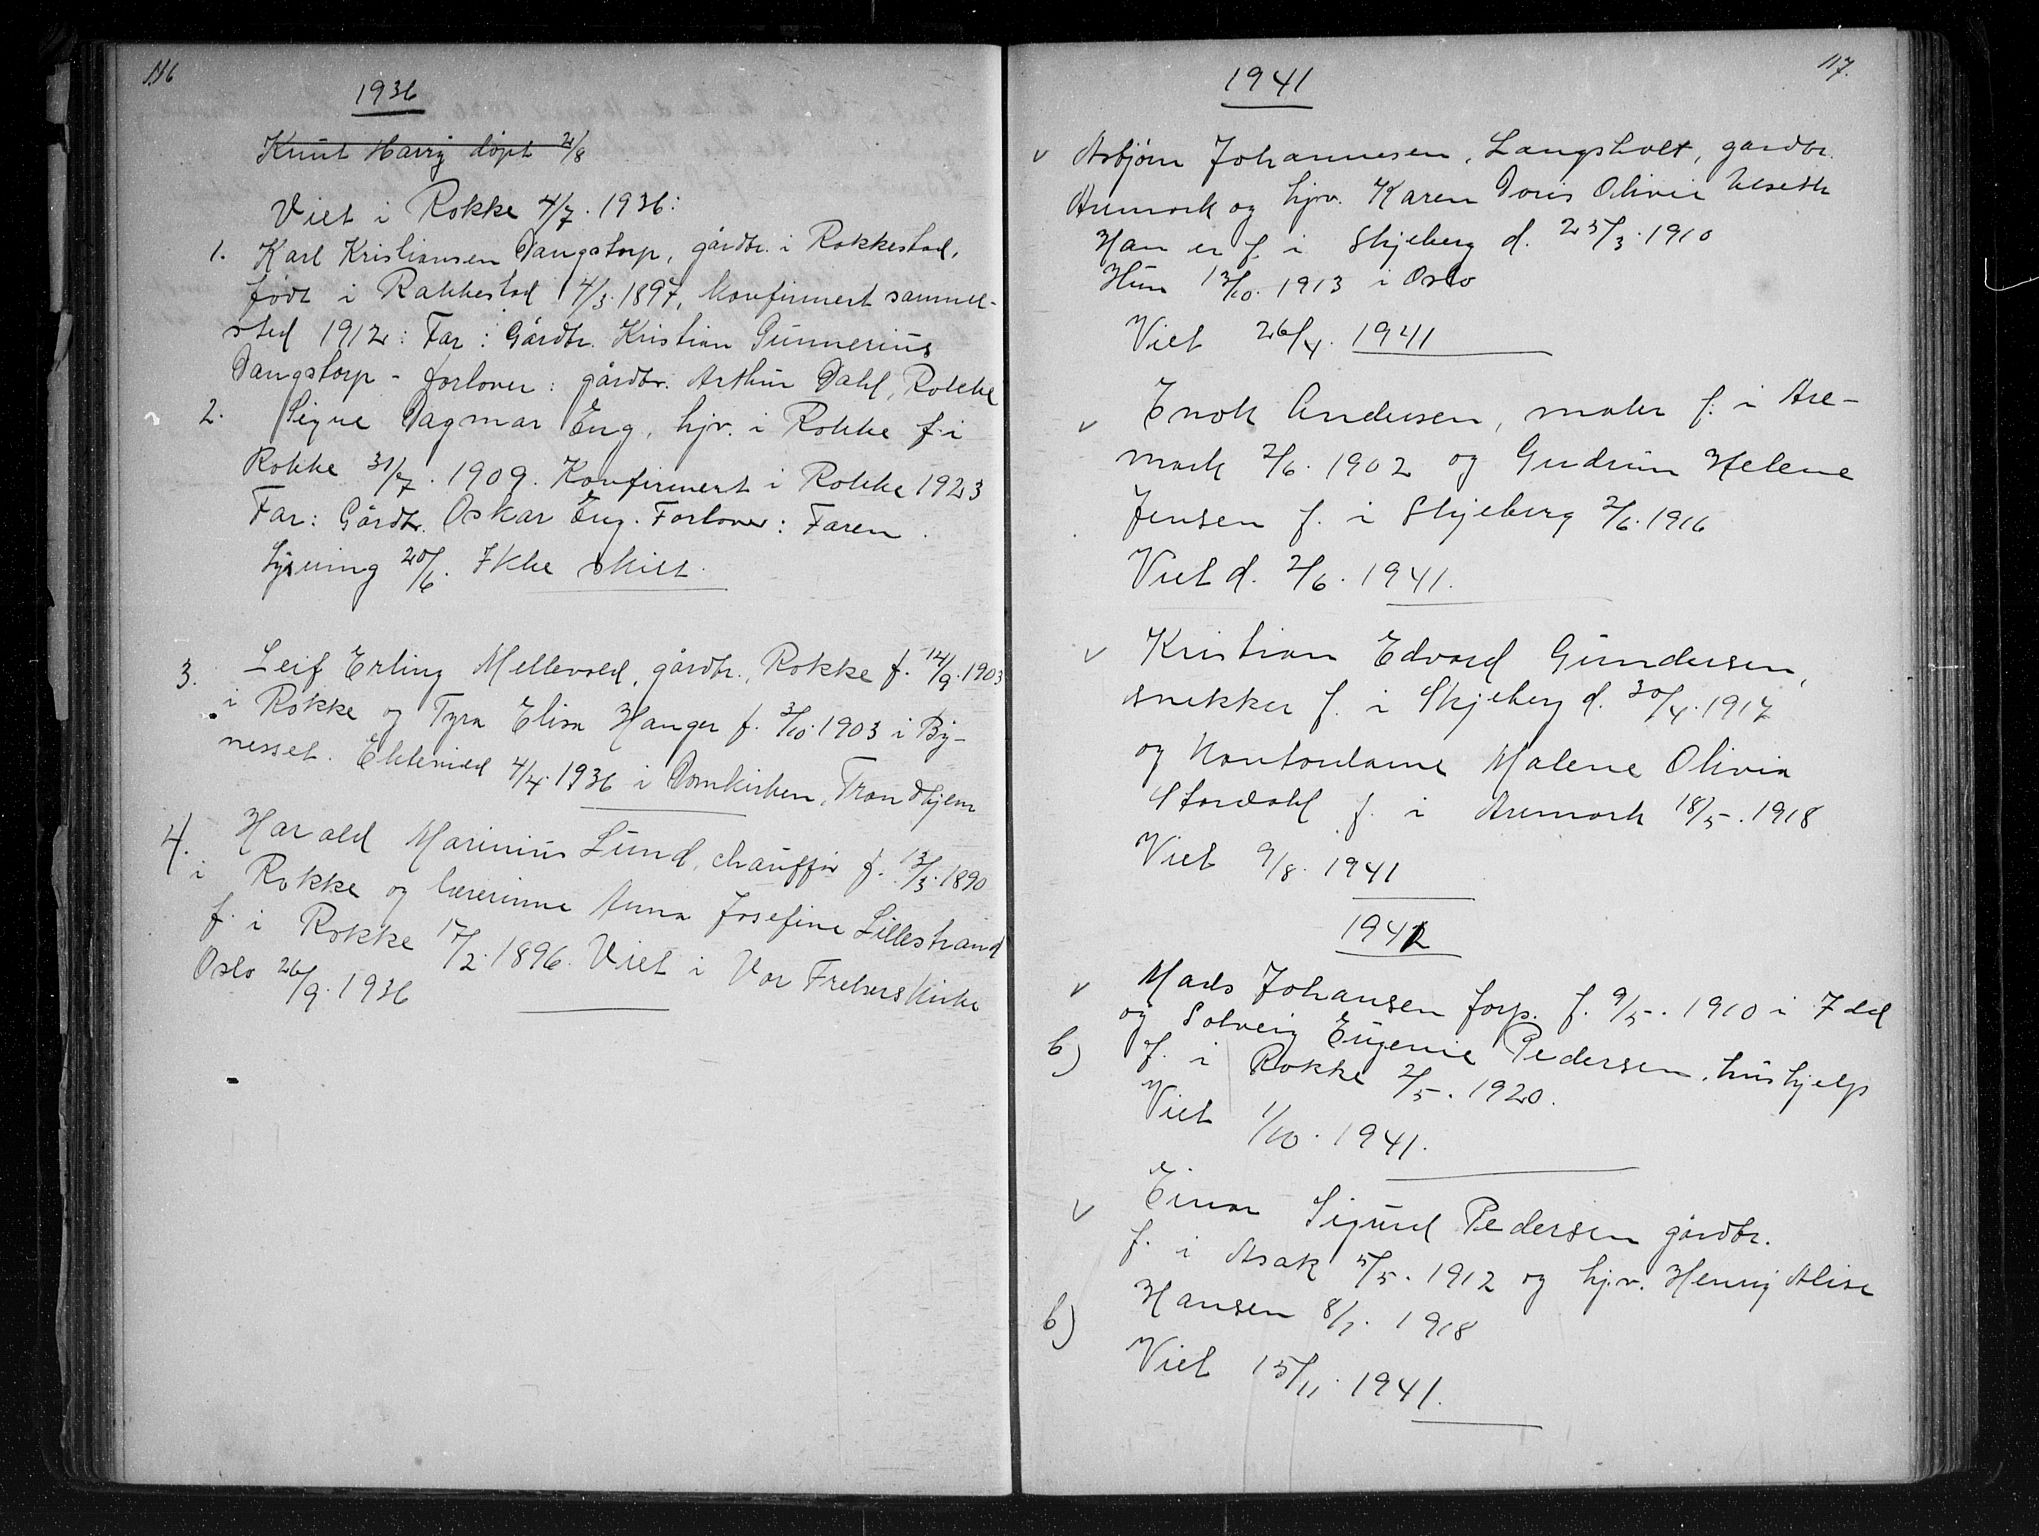 116
1936
Knut Harry døpt 2/8
Viet i Rokke 4/7. 1936:
1. Karl Kristiansen Dangstorp, gårdbr. i Rakkestad,
født i Rakkestad 4/3. 1897, konfirmert samme-
sted 1912: Far: Gårdbr. Kristian Gunnerius
Dangstorp - forlover: gårdbr. Arthur Dahl, Rokke
2. Signe Dagmar Eng, hjv. i Rokke f. i
Rokke 31/7. 1909. Konfirmert i Rokke 1923
Far: Gårdbr. Oskar Eng. Forlover: Faren.
Lysning 20/6. Ikke skilt.
3. Leif Erling Mellevold, gårdbr., Rokke f. 14/9. 1903
i Rokke og Tyra Elisa Hanger f. 3/10. 1903 i By-
nesset. Ekteviet 4/4. 1936 i Domkirken, Trondhjem
4. Harald Marinius Lund, chauffør f. 13/3. 1890
i Rokke og lærerinne Anna Josefine Lillestrand
f. i Rokke 17/2. 1896. Viet i Vor Frelsers kirke
Oslo 26/9. 1936
117.
1941
v Asbjørn Johannesen, Langsholt, gardbr.
Aremark og hjv. Karen Doris Olivie
Han er f. i Skjeberg d. 25/3. 1910
Hun 13/10. 1913 i Oslo
Viet 26/4. 1941
v Enok Andersen, maler f. i Are-
mark 2/6. 1902 og Gudrun Helene
Jensen f. i Skjeberg 2/6. 1916
Viet d. 2/6. 1941.
v Kristian Edvard Gundersen,
snekker f. i Skjeberg d. 30/4. 1917
og kontordame Malene Olivia
Stordahl f. i Aremark 18/5. 1918
Viet 9/8. 1941
1941
v Mads Johansen forp. f. 9/5. 1910 i Idd
og Solveig Eugenie Pedersen, hushjelp
b) f. i Rokke 2/5. 1920.
Viet 1/10. 1941.
v Einar Sigurd Pedersen gårdbr.
f. i Asak 5/5. 1912 og hjv. Henny Alise
b) Hansen 8/1. 1918
Viet 15/11. 1941.